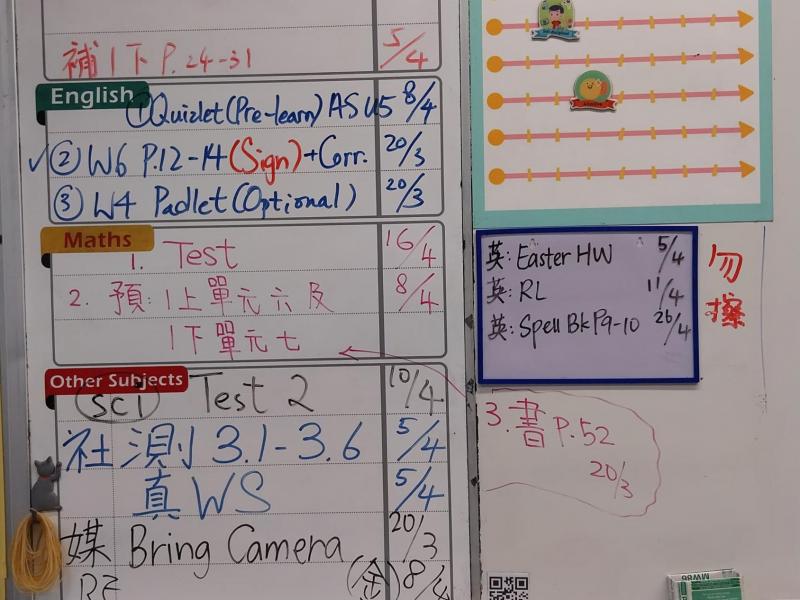 補1下 P.24-31 5/4
English
①Quizlet(Pre-learn) AS U5 8/4
✓② W6 P.12-14(Sign)+Corr. 20/3
③ W4 Padlet(Optional) 20/3
Maths
1. Test 16/4
2. 預:1上單元六及 8/4
1下單元七
Other Subjects
sci Test 2 10/4
社 測 3.1-3.6 5/4
真 WS 5/4
媒 Bring Camera 20/3
RE (金) 8/4
英: Easter HW 5/4
英: RL 11/4
英: Spell Bk P9-10 26/4
勿擦
3. 書 P.52
20/3